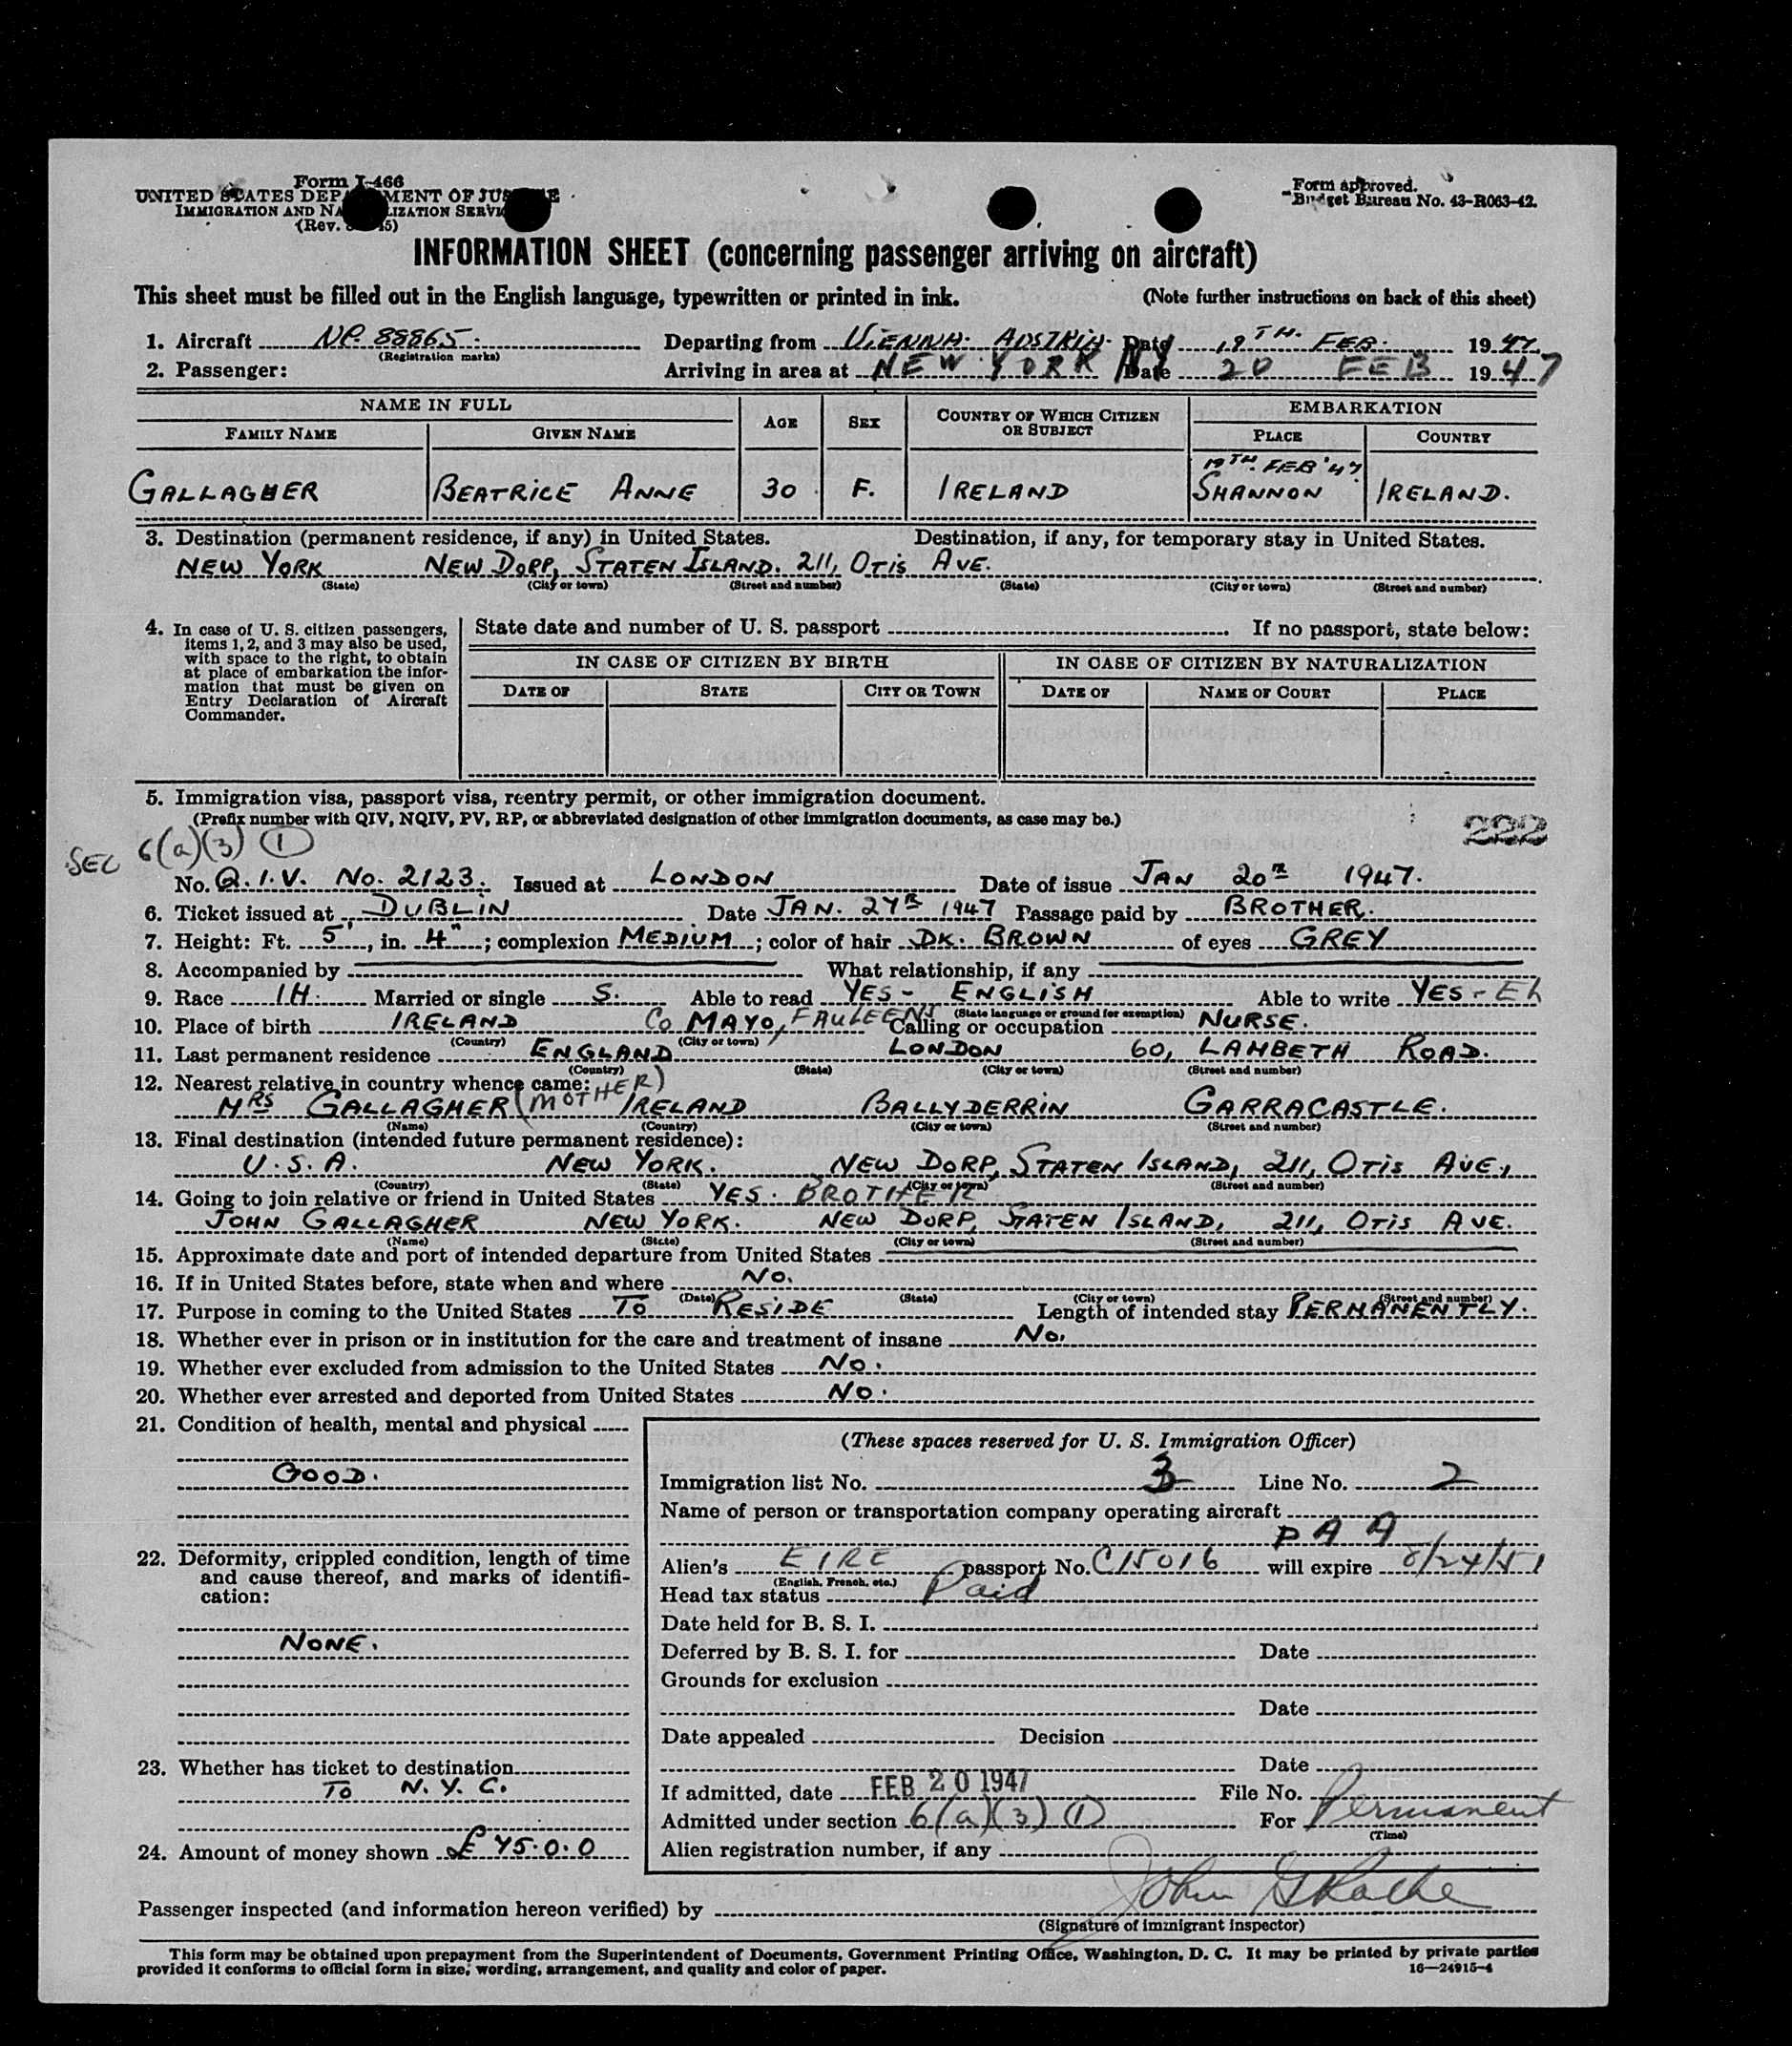 Form I-466
UNITED STATES DEPARTMENT OF JUSTICE
IMMIGRATION AND NATURALIZATION SERVICE
(Rev. 45)
Form approved.
Budget Bureau No. 43-R063-42.
INFORMATION SHEET (concerning passenger arriving on aircraft)
This sheet must be filled out in the English language, typewritten or printed in ink. (Note further instructions on back of this sheet)
1. Aircraft 88865. Departing from VIENNA. AUSTRIA. Date 19TH. FEB. 1947.
(Registration marks)
2. Passenger: Arriving in area at NEW YORK NY Date 20 FEB 1947
NAME IN FULL AGE SEX COUNTRY OF WHICH CITIZEN OR SUBJECT EMBARKATION
FAMILY NAME GIVEN NAME PLACE COUNTRY
19TH. FEB '47.
GALLAGHER BEATRICE ANNE 30 F. IRELAND SHANNON IRELAND.
3. Destination (permanent residence, if any) in United States. Destination, if any, for temporary stay in United States.
NEW YORK NEW DORP, STATEN ISLAND. 211, OTIS AVE.
(State) (City or town) (Street and number) (State) (City or town) (Street and number)
4. In case of U. S. citizen passengers, items 1, 2, and 3 may also be used, with space to the right, to obtain at place of embarkation the information that must be given on Entry Declaration of Aircraft Commander.
State date and number of U. S. passport If no passport, state below:
IN CASE OF CITIZEN BY BIRTH IN CASE OF CITIZEN BY NATURALIZATION
DATE OF STATE CITY OR TOWN DATE OF NAME OF COURT PLACE
5. Immigration visa, passport visa, reentry permit, or other immigration document.
(Prefix number with QIV, NQIV, PV, RP, or abbreviated designation of other immigration documents, as case may be.)
222
SEC 6(a)(3) 1
No. Q.I.V. No. 2123. Issued at LONDON Date of issue JAN 20TH 1947.
6. Ticket issued at DUBLIN Date JAN. 27TH 1947 Passage paid by BROTHER.
7. Height: Ft. 5', in. 4"; complexion MEDIUM; color of hair DK. BROWN of eyes GREY
8. Accompanied by What relationship, if any
9. Race IH. Married or single S. Able to read YES - ENGLISH Able to write YES - E
(State language or ground for exemption)
10. Place of birth IRELAND Co MAYO, FAULEENS Calling or occupation NURSE.
(Country) (City or town)
11. Last permanent residence ENGLAND LONDON 60, LAMBETH ROAD.
(Country) (State) (City or town) (Street and number)
12. Nearest relative in country whence came:
MRS GALLAGHER (MOTHER) IRELAND BALLYDERRIN GARRACASTLE.
(Name) (Country) (City or town) (Street and number)
13. Final destination (intended future permanent residence):
U.S.A. NEW YORK. NEW DORP, STATEN ISLAND, 211, OTIS AVE.,
(Country) (State) (City or town) (Street and number)
14. Going to join relative or friend in United States YES. BROTHER
JOHN GALLAGHER NEW YORK. NEW DORP, STATEN ISLAND, 211, OTIS AVE.
(Name) (State) (City or town) (Street and number)
15. Approximate date and port of intended departure from United States
16. If in United States before, state when and where No.
(Date) (State) (City or town) (Street and number)
17. Purpose in coming to the United States TO RESIDE Length of intended stay PERMANENTLY.
18. Whether ever in prison or in institution for the care and treatment of insane No.
19. Whether ever excluded from admission to the United States No.
20. Whether ever arrested and deported from United States No.
21. Condition of health, mental and physical
GOOD.
22. Deformity, crippled condition, length of time and cause thereof, and marks of identification:
NONE.
23. Whether has ticket to destination
TO N.Y.C.
24. Amount of money shown £ 45.0.0
(These spaces reserved for U. S. Immigration Officer)
Immigration list No. 3 Line No. 2
Name of person or transportation company operating aircraft
P A A
Alien's EIRE passport No. C15016 will expire 8/24/51
(English, French, etc.)
Head tax status Paid
Date held for B. S. I.
Deferred by B. S. I. for Date
Grounds for exclusion
Date
Date appealed Decision
Date
If admitted, date FEB 20 1947 File No.
Admitted under section 6(a)(3) 1 For Permanent
(Time)
Alien registration number, if any
Passenger inspected (and information hereon verified) by John G
(Signature of immigrant inspector)
This form may be obtained upon prepayment from the Superintendent of Documents, Government Printing Office, Washington, D. C. It may be printed by private parties
provided it conforms to official form in size, wording, arrangement, and quality and color of paper. 16—24915-4